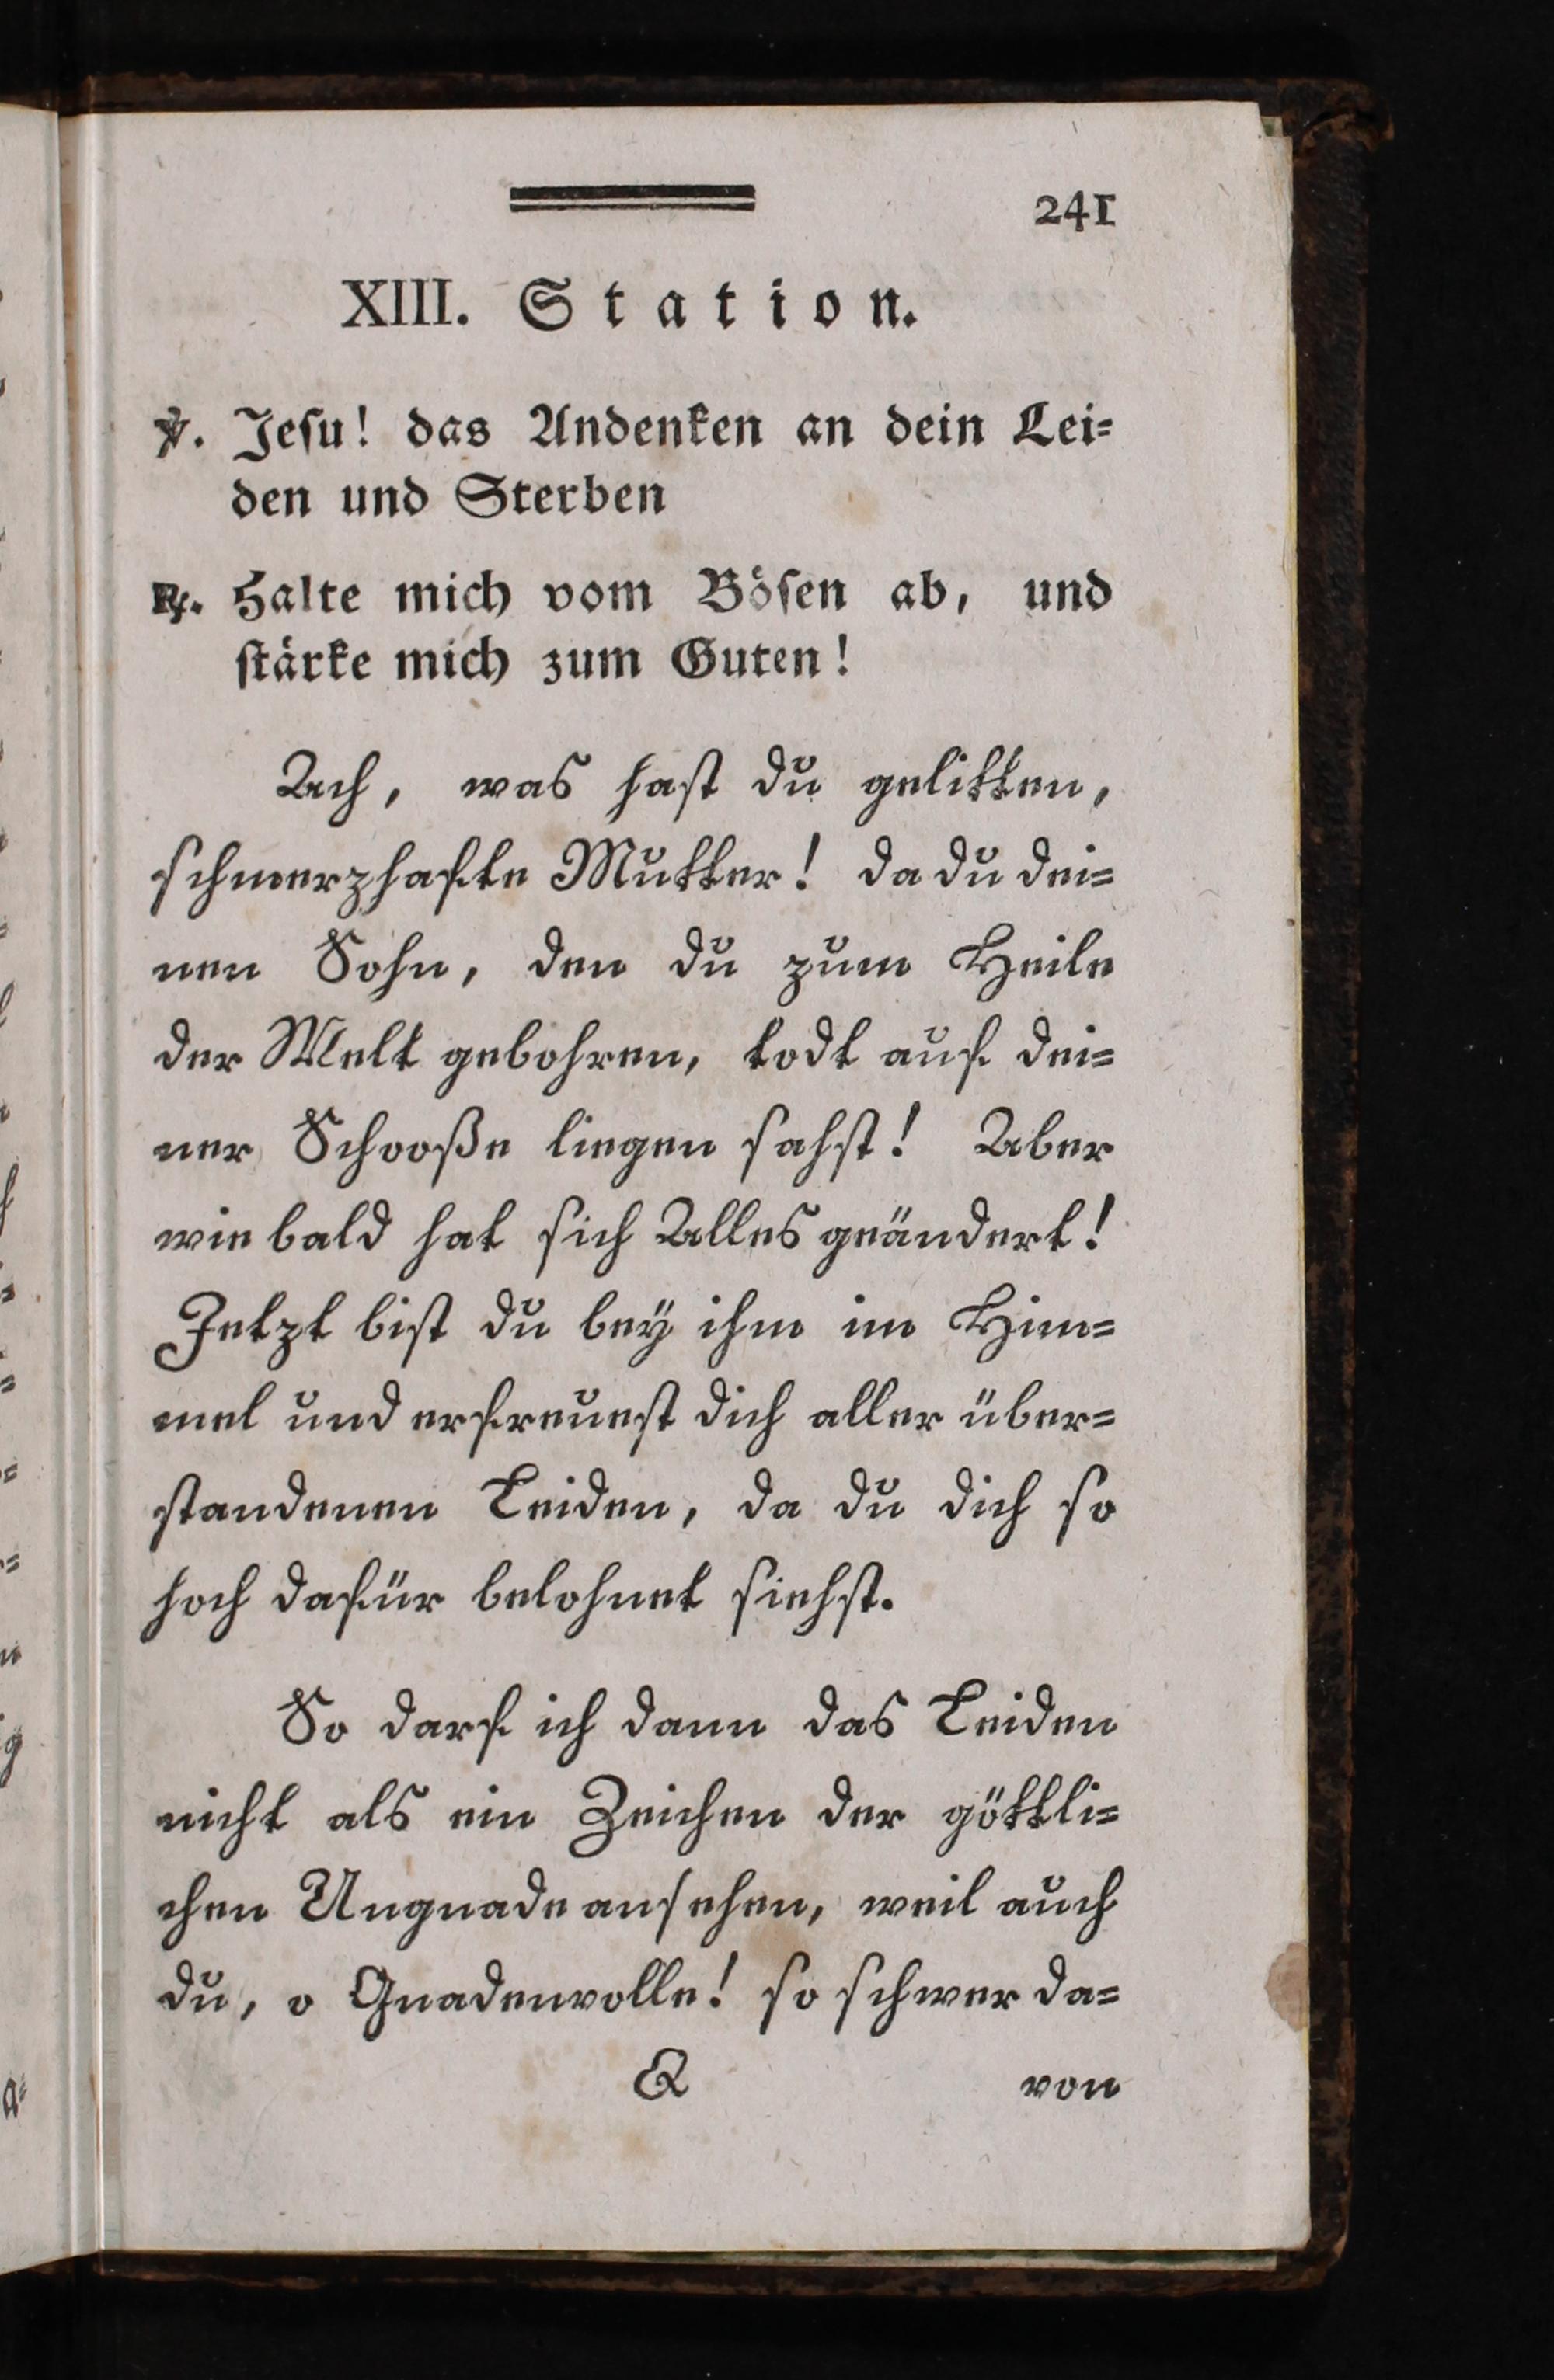 241
XIII. Station.
℣. Jeſu! das Andenken an dein Lei=
den und Sterben
℟. Halte mich vom Böſen ab, und
ſtärke mich zum Guten!
Ach, was haſt du gelitten,
ſchmerzhafte Mutter! da du dei=
nen Sohn, den du zum Heile
der Welt gebohren, todt auf dei=
ner Schooße liegen ſahſt! Aber
wie bald hat ſich Alles geändert!
Jetzt biſt du bey ihm im Him=
mel und erfreueſt dich aller über=
ſtandenen Leiden, da du dich ſo
hoch dafür belohnet ſiehſt.
So darf ich dann das Leiden
nicht als ein Zeichen der göttli=
chen Ungnade anſehen, weil auch
du, o Gnadenvolle! ſo ſchwer da=
Q von